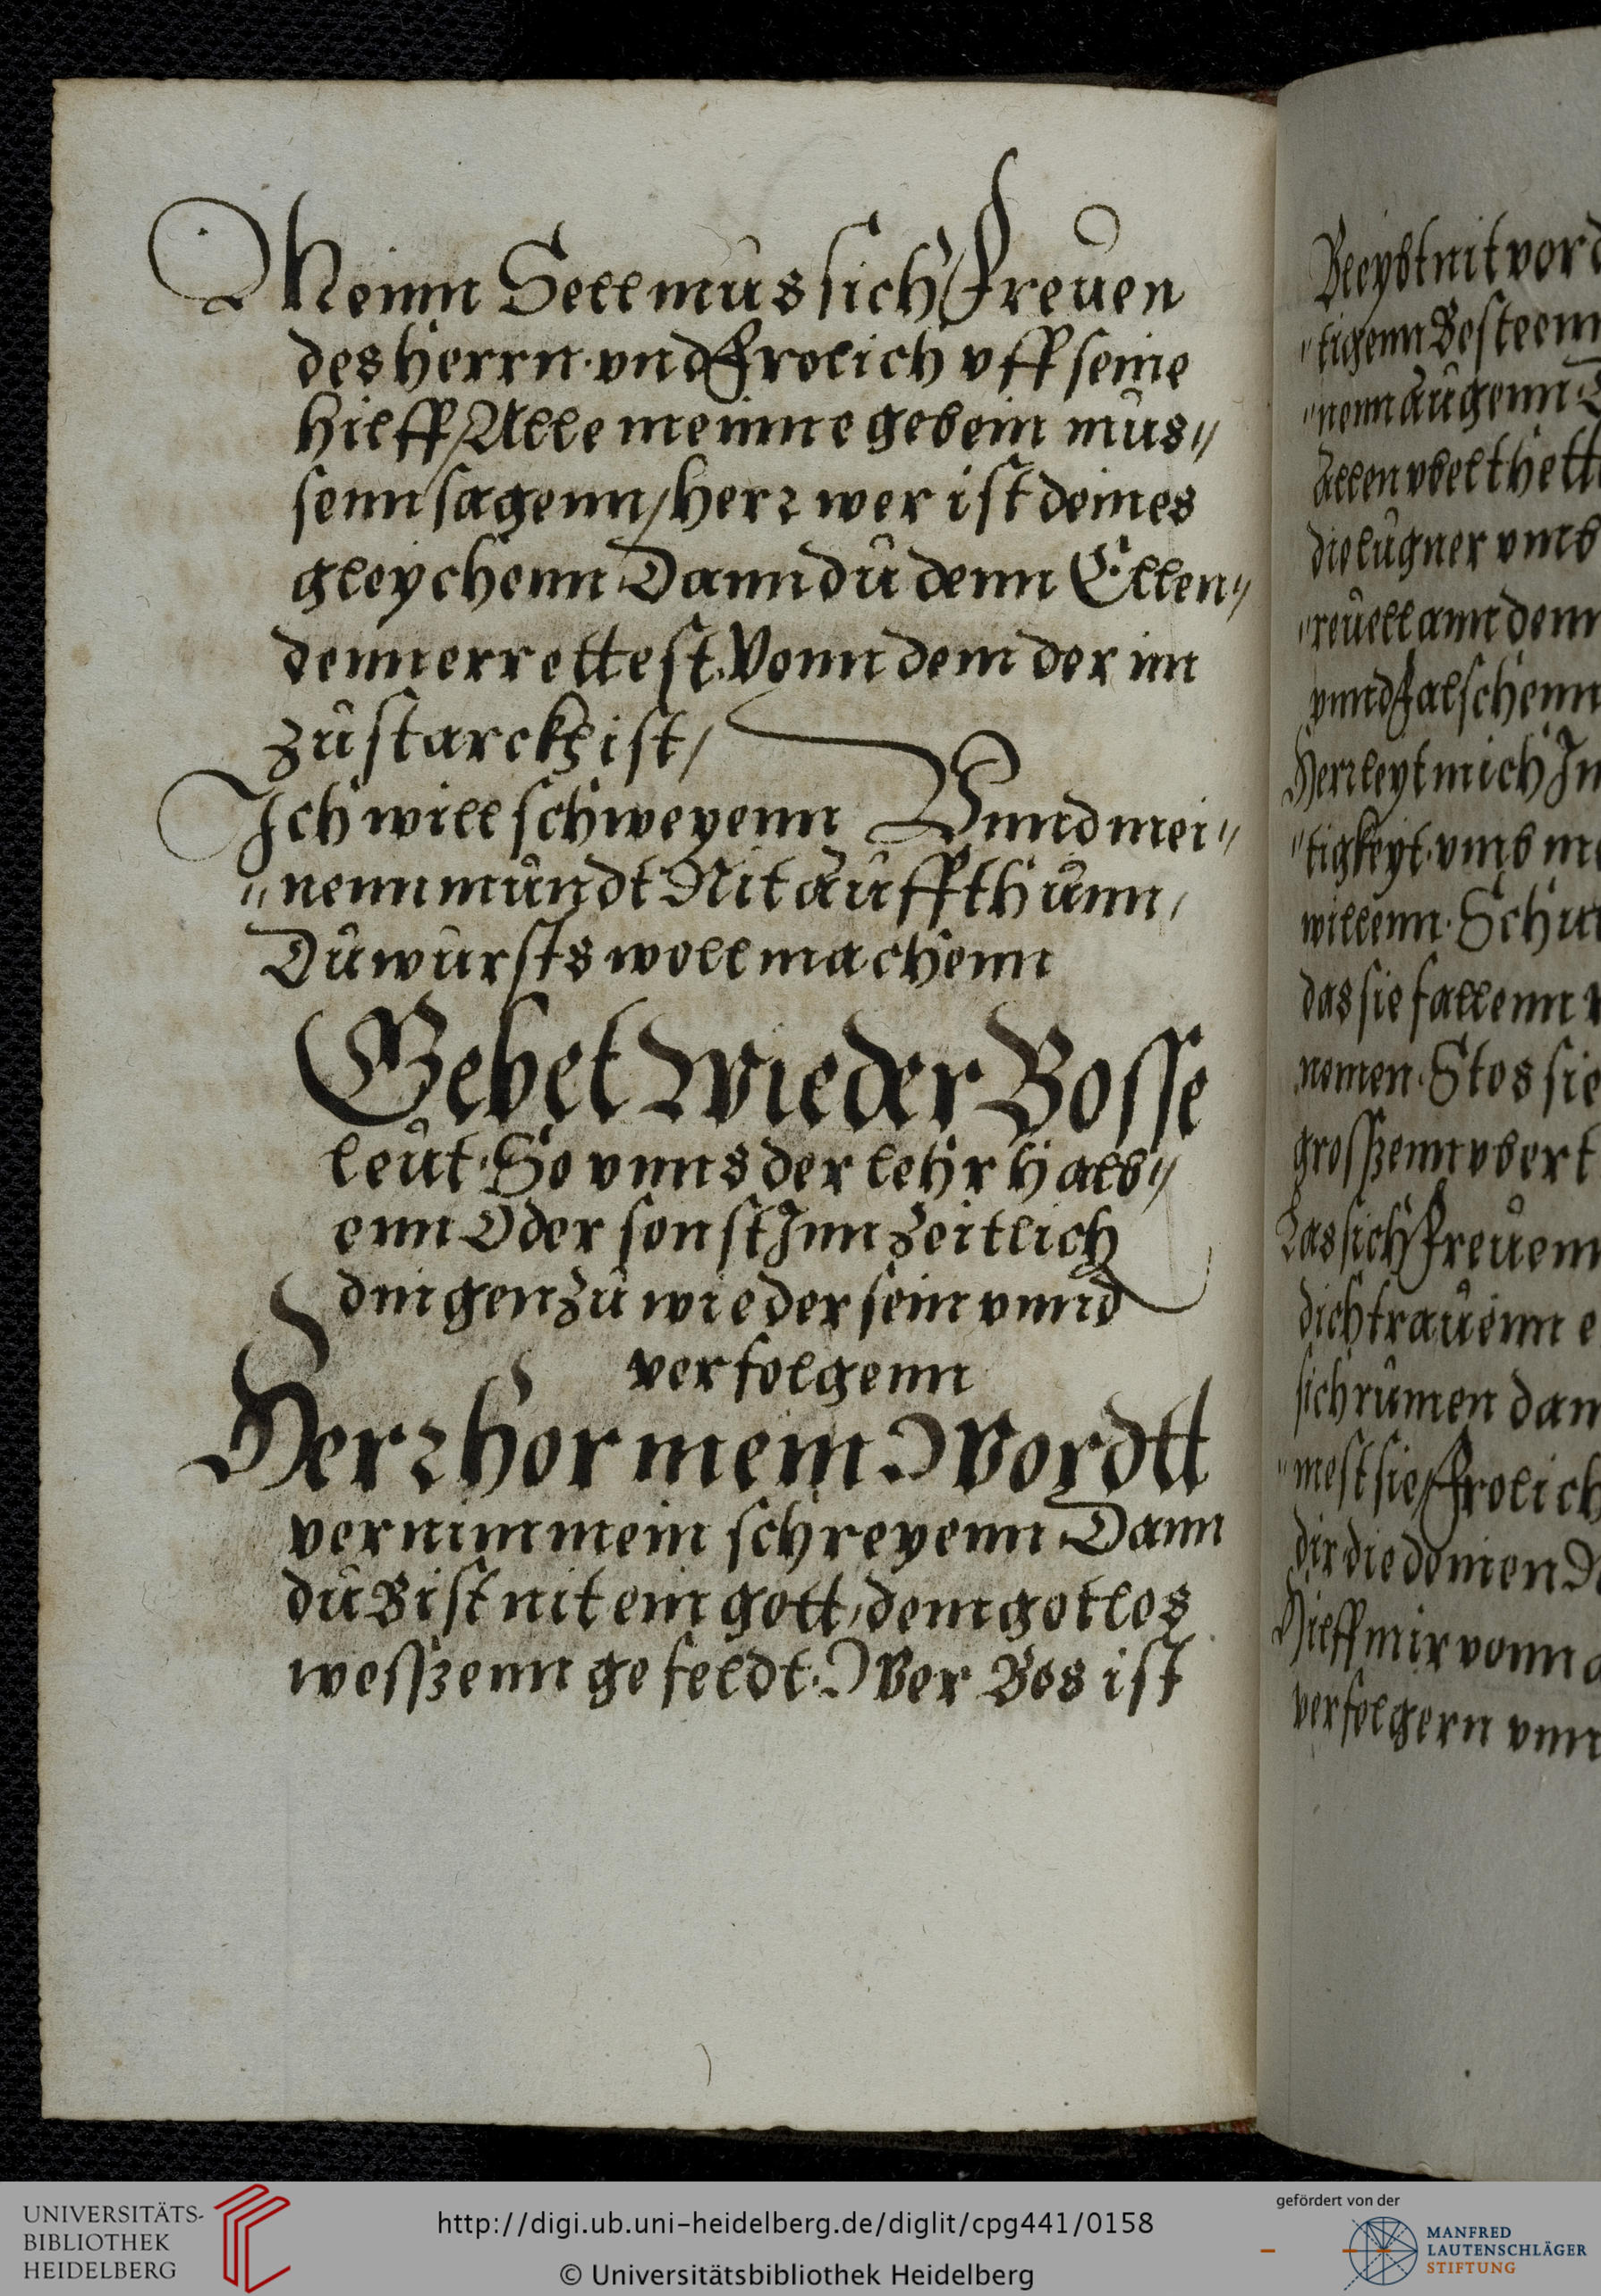 Meinn Sell mus sich freuen
des herrn. vnd frolich vff seine
hilff / Alle meinne gebein mus„
senn sagenn / herz wer ist deines
gleychenn Dann du denn Ellen„
denn errettest. Vonn dem der im
zu starckh ist /
Ich will schweyenn Vnnd mei„
„nenn mundt Nit auffthunn,
Du wursts woll machenn
Gebet Wieder Bosse
leut. So vnns der lehr halb„
enn Oder sonst Inn zeitlich
dingen zu wieder sein vnnd
verfolgenn
Herz hor mein Wordtt
vernim mein schreyenn Dann
du Bist nit ein gott, dem gotlos
wesszenn gefeldt. Wer Bos ist
Bleybt nit vor d
„tigenn Besteenn
„nenn augenn
Allen vbelthett
die lugner vmb
„reuell ann dem
vnnd falschenn
Herr leyt mich In
„tigkeyt. vmb me
willenn. Schu
das sie fallenn v
nemen. Stos sie
grosszenn vbert
Las sich freuenn
dich trauenn e
sich rumen dan
„mest sie, frolich
dir die deinen
Hielff mir vonn
verfolgern vnn
UNIVERSITÄTS-
BIBLIOTHEK
HEIDELBERG
http://digi.ub.uni-heidelberg.de/diglit/cpg441/0158
© Universitätsbibliothek Heidelberg
gefördert von der
MANFRED
LAUTENSCHLÄGER
STIFTUNG